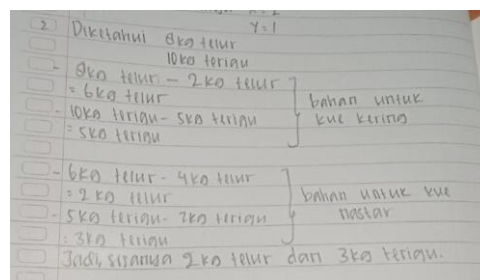 Y = 1
2) Diketahui 8kg telur
10kg terigu
- 8kg telur - 2kg telur
= 6kg telur
- 10kg terigu - 5kg terigu
= 5kg terigu
bahan untuk
kue kering
- 6kg telur - 4kg telur
= 2kg telur
- 5kg terigu - 2kg terigu
= 3kg terigu
bahan untuk kue
nastar
Jadi, sisanya 2kg telur dan 3kg terigu.